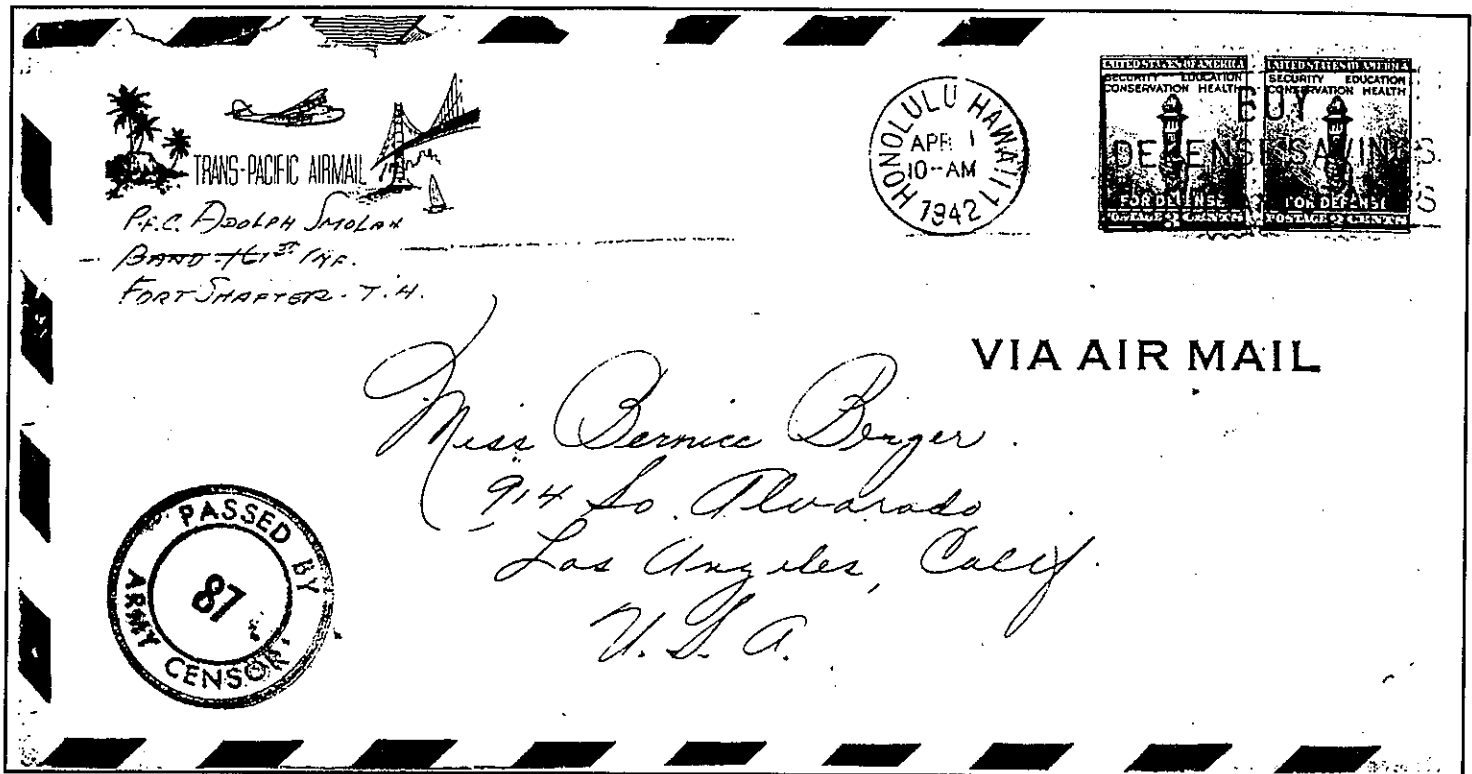 TRANS-PACIFIC AIRMAIL
P.F.C. ADOLPH SMOLAN
BAND-161ST INF.
FORT SHAFTER-T.H.
HONOLULU HAWAII 1
APR 1
10-AM
1942
UNITED STATES OF AMERICA
SECURITY EDUCATION
CONSERVATION HEALTH
FOR DEFENSE
POSTAGE 3 CENTS
UNITED STATES OF AMERICA
SECURITY EDUCATION
CONSERVATION HEALTH
FOR DEFENSE
POSTAGE 3 CENTS
BUY
DEFENSE SAVINGS
VIA AIR MAIL
Miss Bernice Berger.
914 So. Alvarado
Los Angeles, Calif.
U.S.A.
PASSED BY
87
ARMY CENSOR